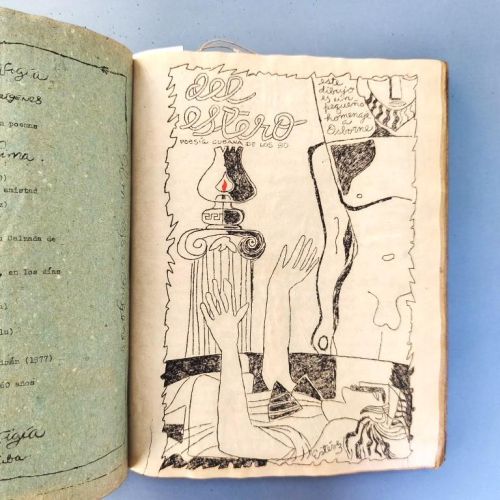 Vigía
orígenes
n poemas
ima.
amistad
z)
Calzada de
, en los días
lu)
(1977)
60 años
Vigía
ba
del
estero
POESÍA CUBANA DE LOS 80
este
dibujo
es un
pequeño
homenaje
a
Osborne